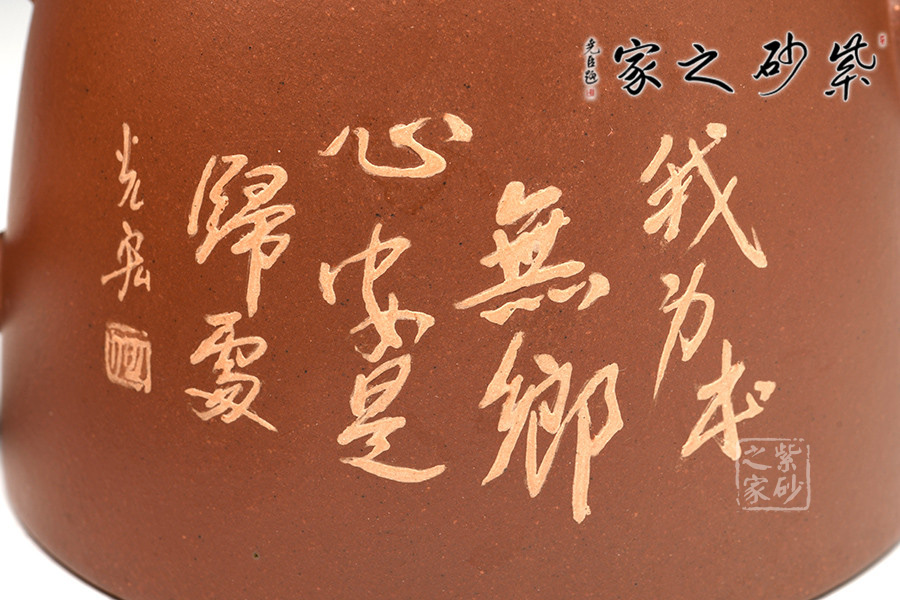 紫砂之家
尧臣题
我为本
無鄉
心安是
歸處
光宏
紫砂之家